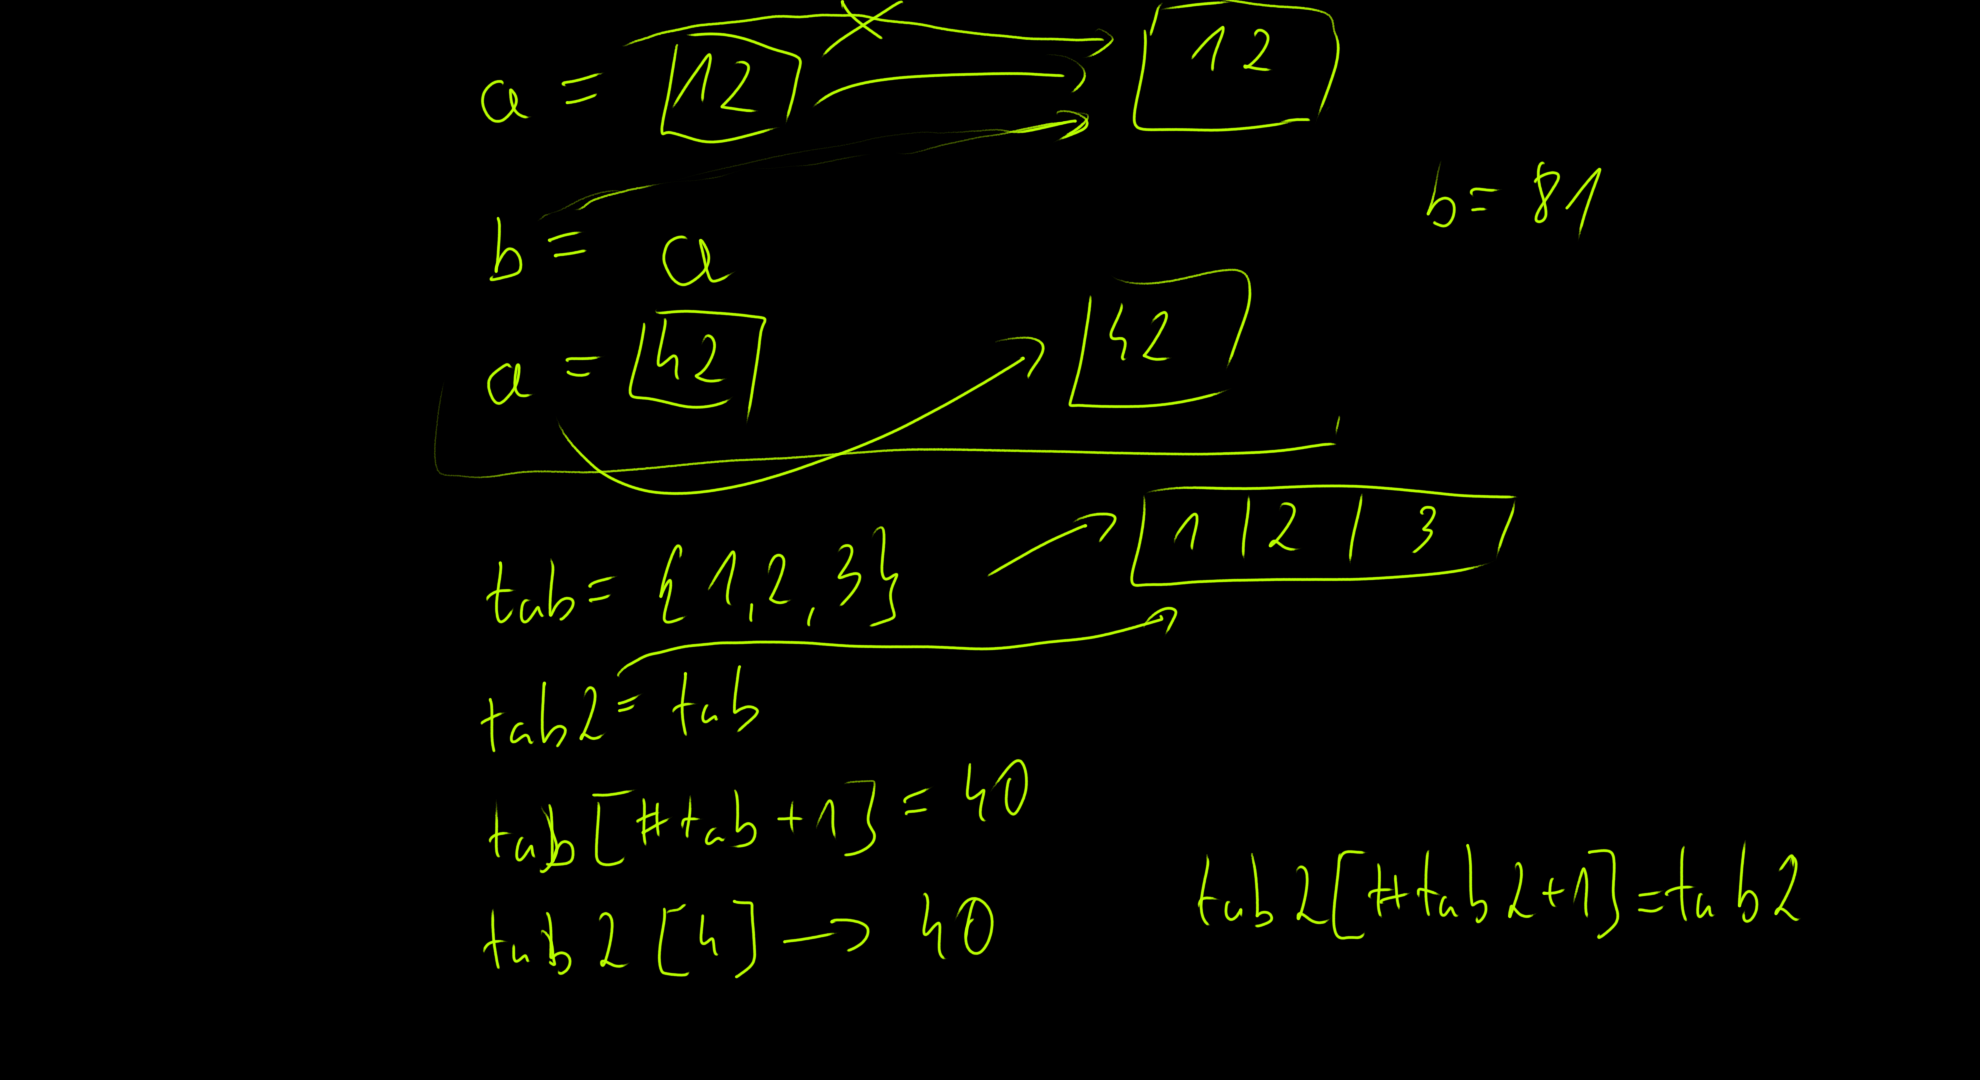 a = 12 12
b = 81
b = a
a = 42 42
tab = {1,2,3} 1 | 2 | 3
tab2 = tab
tab[#tab+1] = 40
tab2[#tab2+1]=tab2
tab2[4] → 40